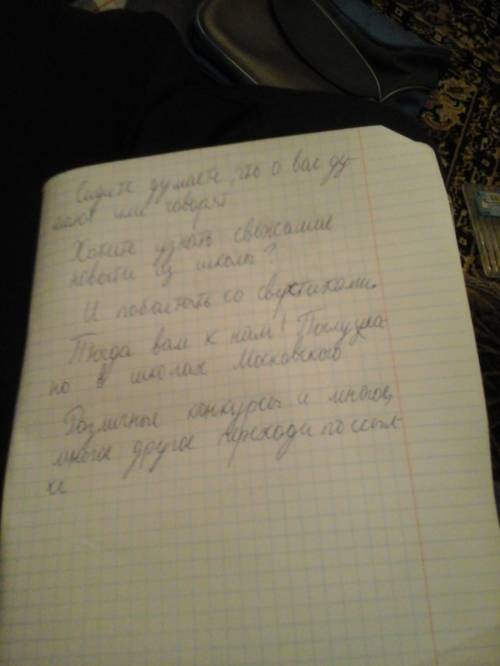 Сидите думаете, что о вас ду-
мают или говорят
Хотите узнать свежайшие
новости из школы?
И поболтать со сверстниками.
Тогда вам к нам! Подслуша
но в школах Московского
Различные конкурсы и многое,
многое другое переходи по ссыл-
ке